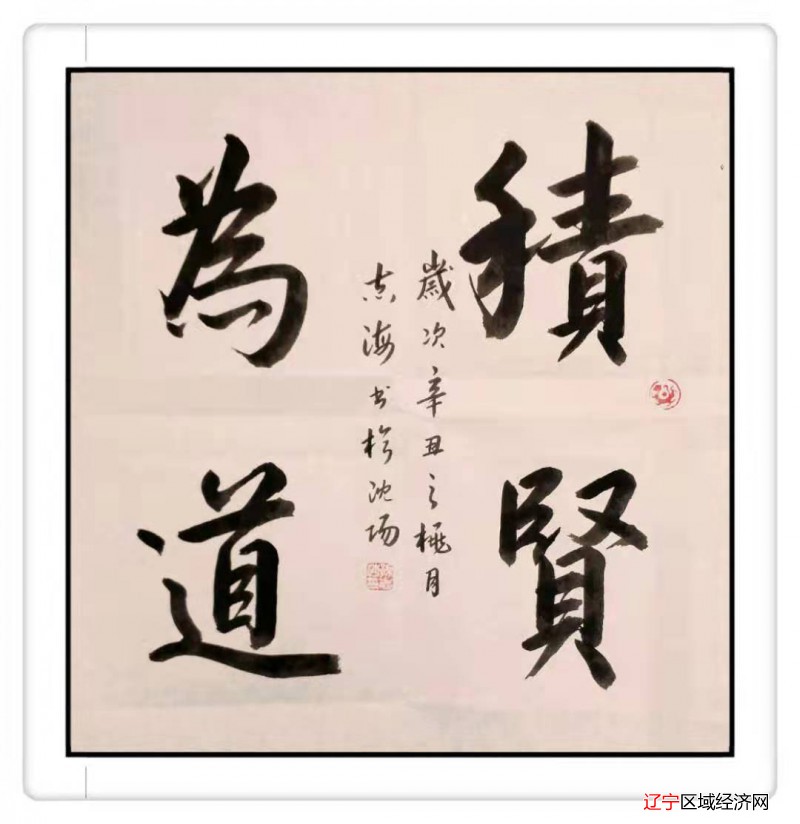 積賢
為道
歲次辛丑之桃月
志海书於沈陽
辽宁区域经济网